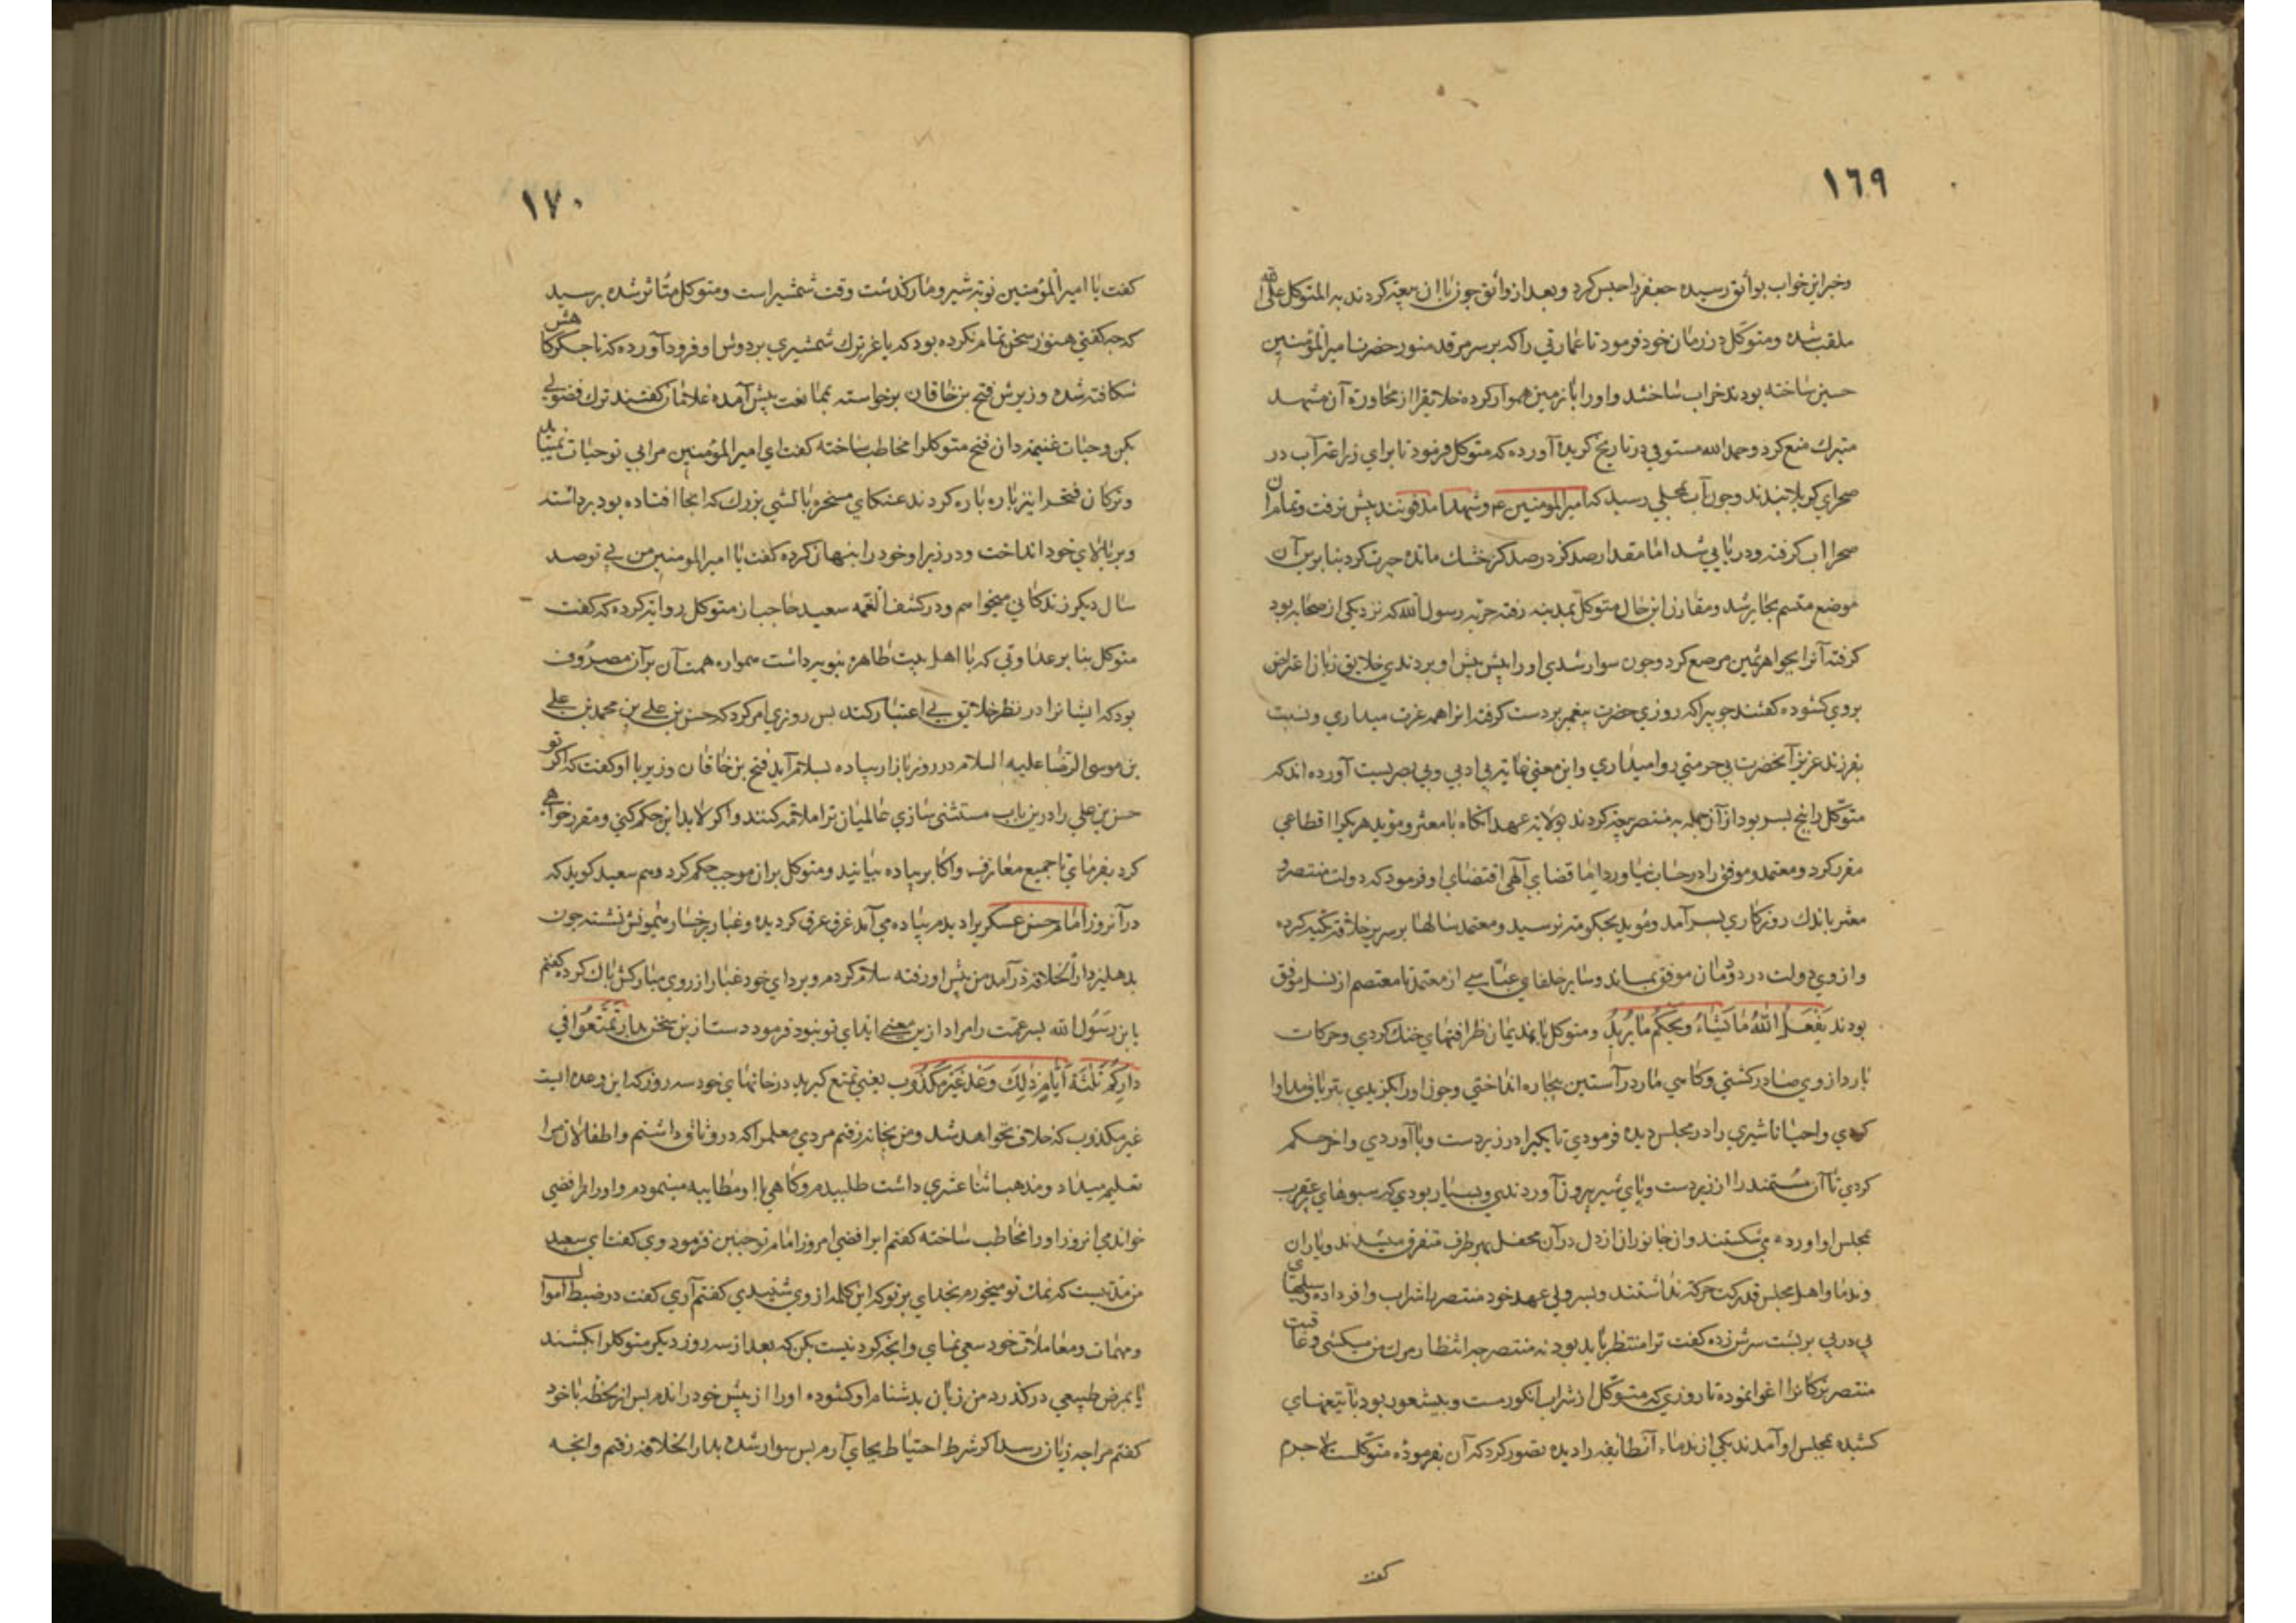 ١٦٩
وخبر این خواب بواثق رسیده جعفر را حبس کرد و بعد از واثق چون باان بیعة کردند به المتوکل علی الله
ملقب شده ومتوکل در زمان خود فرمود تا عمارتی را که بر سر مرقد منور حضرت امیرالمؤمنین
حسین ساخته بودند خراب ساختند واو را با زمین هموار کرده خلایق را از مجاورة آن مشهد
متبرک منع کرد وحمد الله مستوفی در تاریخ گزیده آورده که متوکل فرمود تا برای زراعت آب در
صحرای کربلا بندند وچون آب بمحلی رسید که امیرالمومنین ع وشهدا مدفونند پیش نرفت وتمام آن
صحرا اب گرفته ودریایی شد اما مقدار صد گز در صد گز خشک مانده حیرت کرد بنا برین آن
موضع متسم بحایر شد ومقارن این حال متوکل بمدینه رفته حربه رسول الله که نزد یکی از صحابه بود
گرفته آنرا بجواهر ثمین مرصع کرد وچون سوار شدی او را پیش پیش او بردندی خلایق زبان اعتراض
بروی گشوده گفتند چوبی را که روزی حضرت پیغمبر بر دست گرفته انرا همه عزت میداری ونسبت
بفرزند عزیز آنحضرت بی حرمتی روا میداری واین معنی غایة بی ادبی وبی بصریست آورده اند که
متوکل را پنج پسر بود از آن جمله به منتصر بیعة کردند بولایة عهد آنگاه با معتز ومؤید هر یکرا اقطاعی
مقرر کرد ومعتمد وموفق را در حساب نیاورد اما قضای آلهی اقتضای او فرمود که دولت منتصر و
معتز باندک روزگاری بسر آمد ومؤید بحکومة نرسید ومعتمد سالها بر سریر خلافة تکیه کرده
واز وی دولت در دودمان موفق بماند وسایر خلفای عباسی از معتمد تا معتصم از نسل موفق
بودند یَفْعَلُ اللّٰهُ مَا یَشَاءُ ویَحْکُمُ مَا یُرِیدُ ومتوکل با ندیمان ظرافتهای خنک کردی وحرکات
بارد از وی صادر گشتی وگاهی مار در آستین بیچاره انداختی وچون او را گزیدی بتریاق مداوا
کردی واحیانا شیری را در مجلس دیده فرمودی تا یکیرا در زیر دست وپا آوردی واخر حکم
کردی تا آن مستمند را از زیر دست وپای شیر بیرون آوردندی وبسیار بودی که سبوهای عقرب
بمجلس او اورده می شکستند وان جانوران از دل در آن محفل بهر طرف متفرق میشدند ویاران
وندما واهل مجلس قدرت حرکة نداشتند وپسر ولی عهد خود منتصر را شراب وافر داده وسیلیهای
پی در پی بر پشت سرش زده گفت ترا منتظر باید بود نه منتصر چه انتظار مرک من میکشی وعاقبت
منتصر ترکانرا اغوا نموده تا روزی که متوکل از شراب انگور مست وبیشعور بود با تیغهای
کشیده بمجلس او آمدند یکی از ندماء آنطایفه را دیده تصور کرد که آن بفرموده متوکلست لا جرم
کفت
١٧٠
کفت یا امیرالمؤمنین نوبة شیر ومار گذشت وقت شمشیر است ومتوکل متاثر شده پرسید
که چه گفتی هنوز سخن تمام نکرده بود که باغر ترک شمشیری بر دوش او فرود آورده که تا جگرگاهش
شکافته شده وزیرش فتح بن خاقان برخواسته بممانعت پیش آمده غلامان گفتند ترک فضولی
بکن وحیات غنیمة دان فتح متوکلرا مخاطب ساخته گفت ای امیرالمؤمنین مرا بی تو حیات نمیباید
وترکان فتحرا نیز پاره پاره کردند عنکای مسخره بالشی بزرک که انجا افتاده بود برداشته
وبر بالای خود انداخت ودر زیر او خود را پنهان کرده گفت یا امیرالمومنین من بی تو صد
سال دیگر زندگانی میخواهم ودر کشف الغمه سعید حاجب از متوکل روایة کرده که گفت
متوکل بنا بر عداوتی که با اهل بیت طاهره نبویه داشت همواره همت آن بر آن مصروف
بود که ایشانرا در نظر خلایق بی اعتبار کند پس روزی امر کرد که حسن بن علی بن محمد بن علی
بن موسی الرضا علیه السلام در روز بازار پیاده بسلام آید فتح بن خاقان وزیر با او گفت که اگر تو
حسن بن علی را درین باب مستثنی سازی عالمیان ترا ملامة کنند واگر لابد این حکم کنی ومقرر خواهی
کرد بفرمای تا جمیع معارف واکابر پیاده بیایند ومتوکل بران موجب حکم کرد وهم سعید گوید که
در آنروز امام حسن عسکریرا دیدم پیاده می آمد غرق عرق گردیده وغبار بر رخسار میمونش نشسته چون
بدهلیز دار الخلافة در آمد من پیش او رفته سلام کردم وبردای خود غبار از روی مبارکش پاک کرده گفتم
یا بن رسول الله پسر عمت را مراد ازین معنی ایذای تو نبود فرمود دست ازین سخن بدار تَمَتَّعُوا فِی
دَارِکُمْ ثَلٰثَةَ أَیَّامٍ ذٰلِكَ وَعْدٌ غَیْرُ مَکْذُوب یعنی تمتع گیرید در خانهای خود سه روز که این وعده ایست
غیر مکذوب که خلاف نخواهد شد ومن بخانه رفتم مردی معلمرا که در وثاق داشتم واطفالان مرا
تعلیم میداد ومذهب اثنا عشری داشت طلبیدم وگاهی با او مطایبه مینمودم واو را رافضی
خواندمی انروز او را مخاطب ساخته گفتم ایرافضی امروز امام تو چنین فرمود وی گفت ای سعید
من مدتیست که نمک تو میخورم بخدای بر تو که این کلمه از وی شنیدی گفتم آری گفت در ضبط اموال
ومهمات ومعاملات خود سعی نمای وانچه کردنیست بکن که بعد از سه روز دیگر متوکلرا بکشند
یا بمرض طبیعی در گذرد من زبان بدشنام او گشوده او را از پیش خود راندم پس از لحظه با خود
گفتم مرا چه زیان رسد اگر شرط احتیاط بجای آرم پس سوار شده بدار الخلافه رفتم وانچه